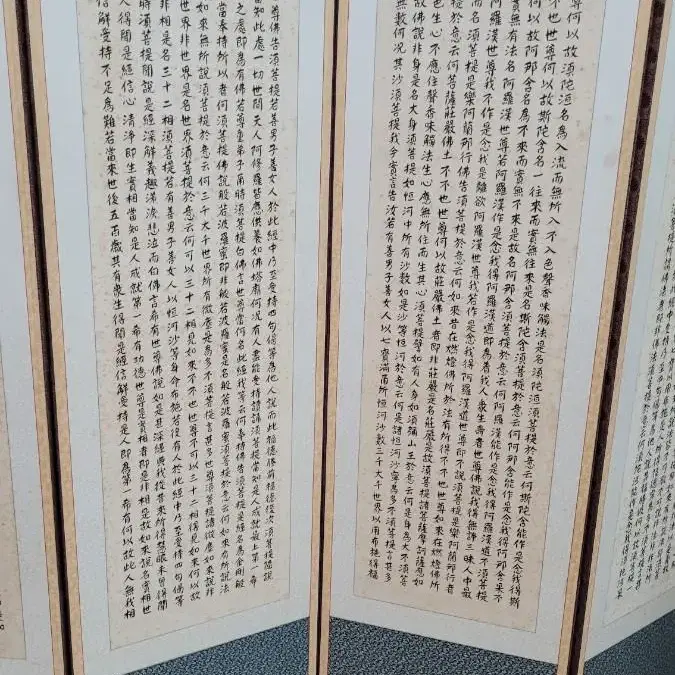 尊何以故須陀洹名為入流而無所入不入色聲香味觸法是名須陀洹須菩提於意云何斯陀含能作是念我得斯
不也世尊何以故斯陀含名一往來而實無往來是名斯陀含須菩提於意云何阿那含能作是念我得阿那含果不
何以故阿那含名為不來而實無不來是故名阿那含須菩提於意云何阿羅漢能作是念我得阿羅漢道不須菩提
實無有法名阿羅漢世尊若阿羅漢作是念我得阿羅漢道即為著我人衆生壽者世尊佛說我得無諍三昧人中最
阿羅漢世尊我不作是念我是離欲阿羅漢世尊我若作是念我得阿羅漢道世尊即不說須菩提是樂阿蘭那行者
而名須菩提是樂阿蘭那行佛告須菩提於意云何如來昔在燃燈佛所於法有所得不不也世尊如來在燃燈佛所
於意云何菩薩莊嚴佛土不不也世尊何以故莊嚴佛土者即非莊嚴是名莊嚴是故須菩提諸菩薩摩訶薩應如
色生心不應住聲香味觸法生心應無所住而生其心須菩提譬如有人身如須彌山王於意云何是身為大不須菩
故佛說非身是名大身須菩提如恒河中所有沙數如是沙等恒河於意云何是諸恒河沙寧為多不須菩提言甚多
無數何況其沙須菩提我今實言告汝若有善男子善女人以七寶滿爾所恒河沙數三千大千世界以用布施得福
尊佛告須菩提若善男子善女人於此經中乃至受持四句偈等為他人說而此福德勝前福德復次須菩提隨說
當知此處一切世間天人阿修羅皆應供養如佛塔廟何況有人盡能受持讀誦須菩提當知是人成就最上第一希
之處即為有佛若尊重弟子爾時須菩提白佛言世尊當何名此經我等云何奉持佛告須菩提是經名為金剛般
當奉持所以者何須菩提佛說般若波羅蜜即非般若波羅蜜是名般若波羅蜜須菩提於意云何如來有所說法
如來無所說須菩提於意云何三千大千世界所有微塵是為多不須菩提言甚多世尊須菩提諸微塵如來說非
世界非世界是名世界須菩提於意云何可以三十二相見如來不不也世尊不可以三十二相得見如來何以故
非相是名三十二相須菩提若有善男子善女人以恒河沙等身命布施若復有人於此經中乃至受持四句偈等
時須菩提聞說是經深解義趣涕淚悲泣而白佛言希有世尊佛說如是甚深經典我從昔來所得慧眼未曾得聞
人得聞是經信心清淨即生實相當知是人成就第一希有功德世尊是實相者即是非相是故如來說名實相世
信解受持不足為難若當來世後五百歲其有衆生得聞是經信解受持是人即為第一希有何以故此人無我相